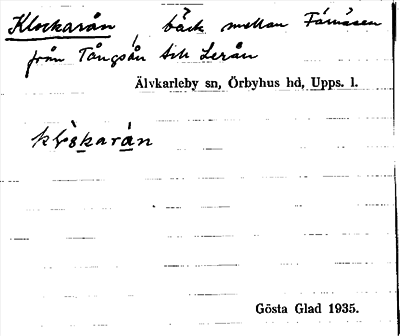 Klockarån, bäck mellan Färnäsen
från Tångsån till Lerån
Älvkarleby sn, Örbyhus hd, Upps. l.
Gösta Glad 1935.